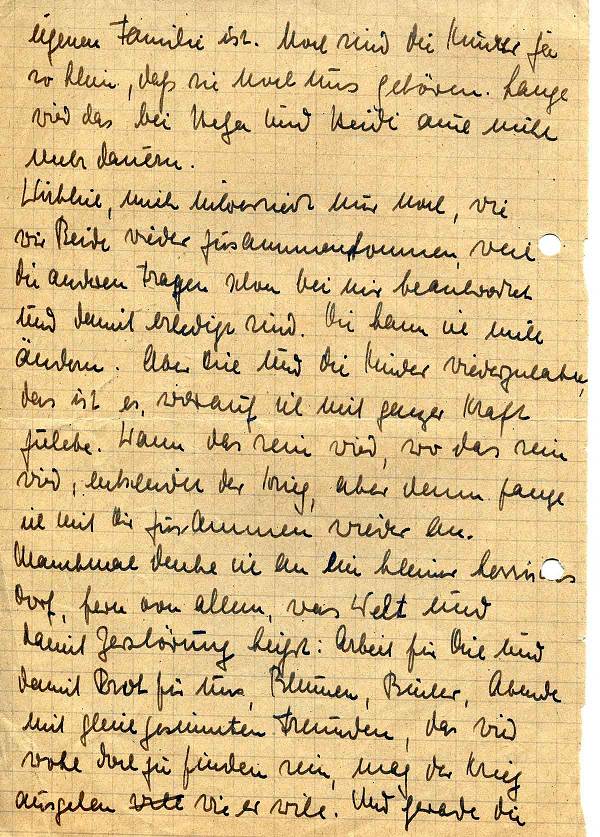 eigenen Familie ist. Noch sind die Kinder ja
so klein, daß sie noch uns gehören. Lange
wird das bei Helga und Heidi auch nicht
mehr dauern.
Wirklich, mich interessiert nur noch, wie
wir Beide wieder zusammenkommen, weil
die anderen Fragen schon bei mir beantwortet
und damit erledigt sind. Die kann ich nicht
ändern. Aber Dich und die Kinder wiederzuhaben,
das ist es, worauf ich mit ganzer Kraft
zulebe. Wann das sein wird, wo das sein
wird, entscheidet der Krieg, aber dann fange
ich mit Dir zusammen wieder an.
Manchmal denke ich an ein kleines hessisches
Dorf, fern von allem, was Welt und
damit Zerstörung heißt: Arbeit für Dich und
damit Brot für uns, Blumen, Bücher, Abende
mit gleichgesinnten Freunden, das wird
wohl doch zu finden sein, mag der Krieg
ausgehen wie er will. Und gerade die